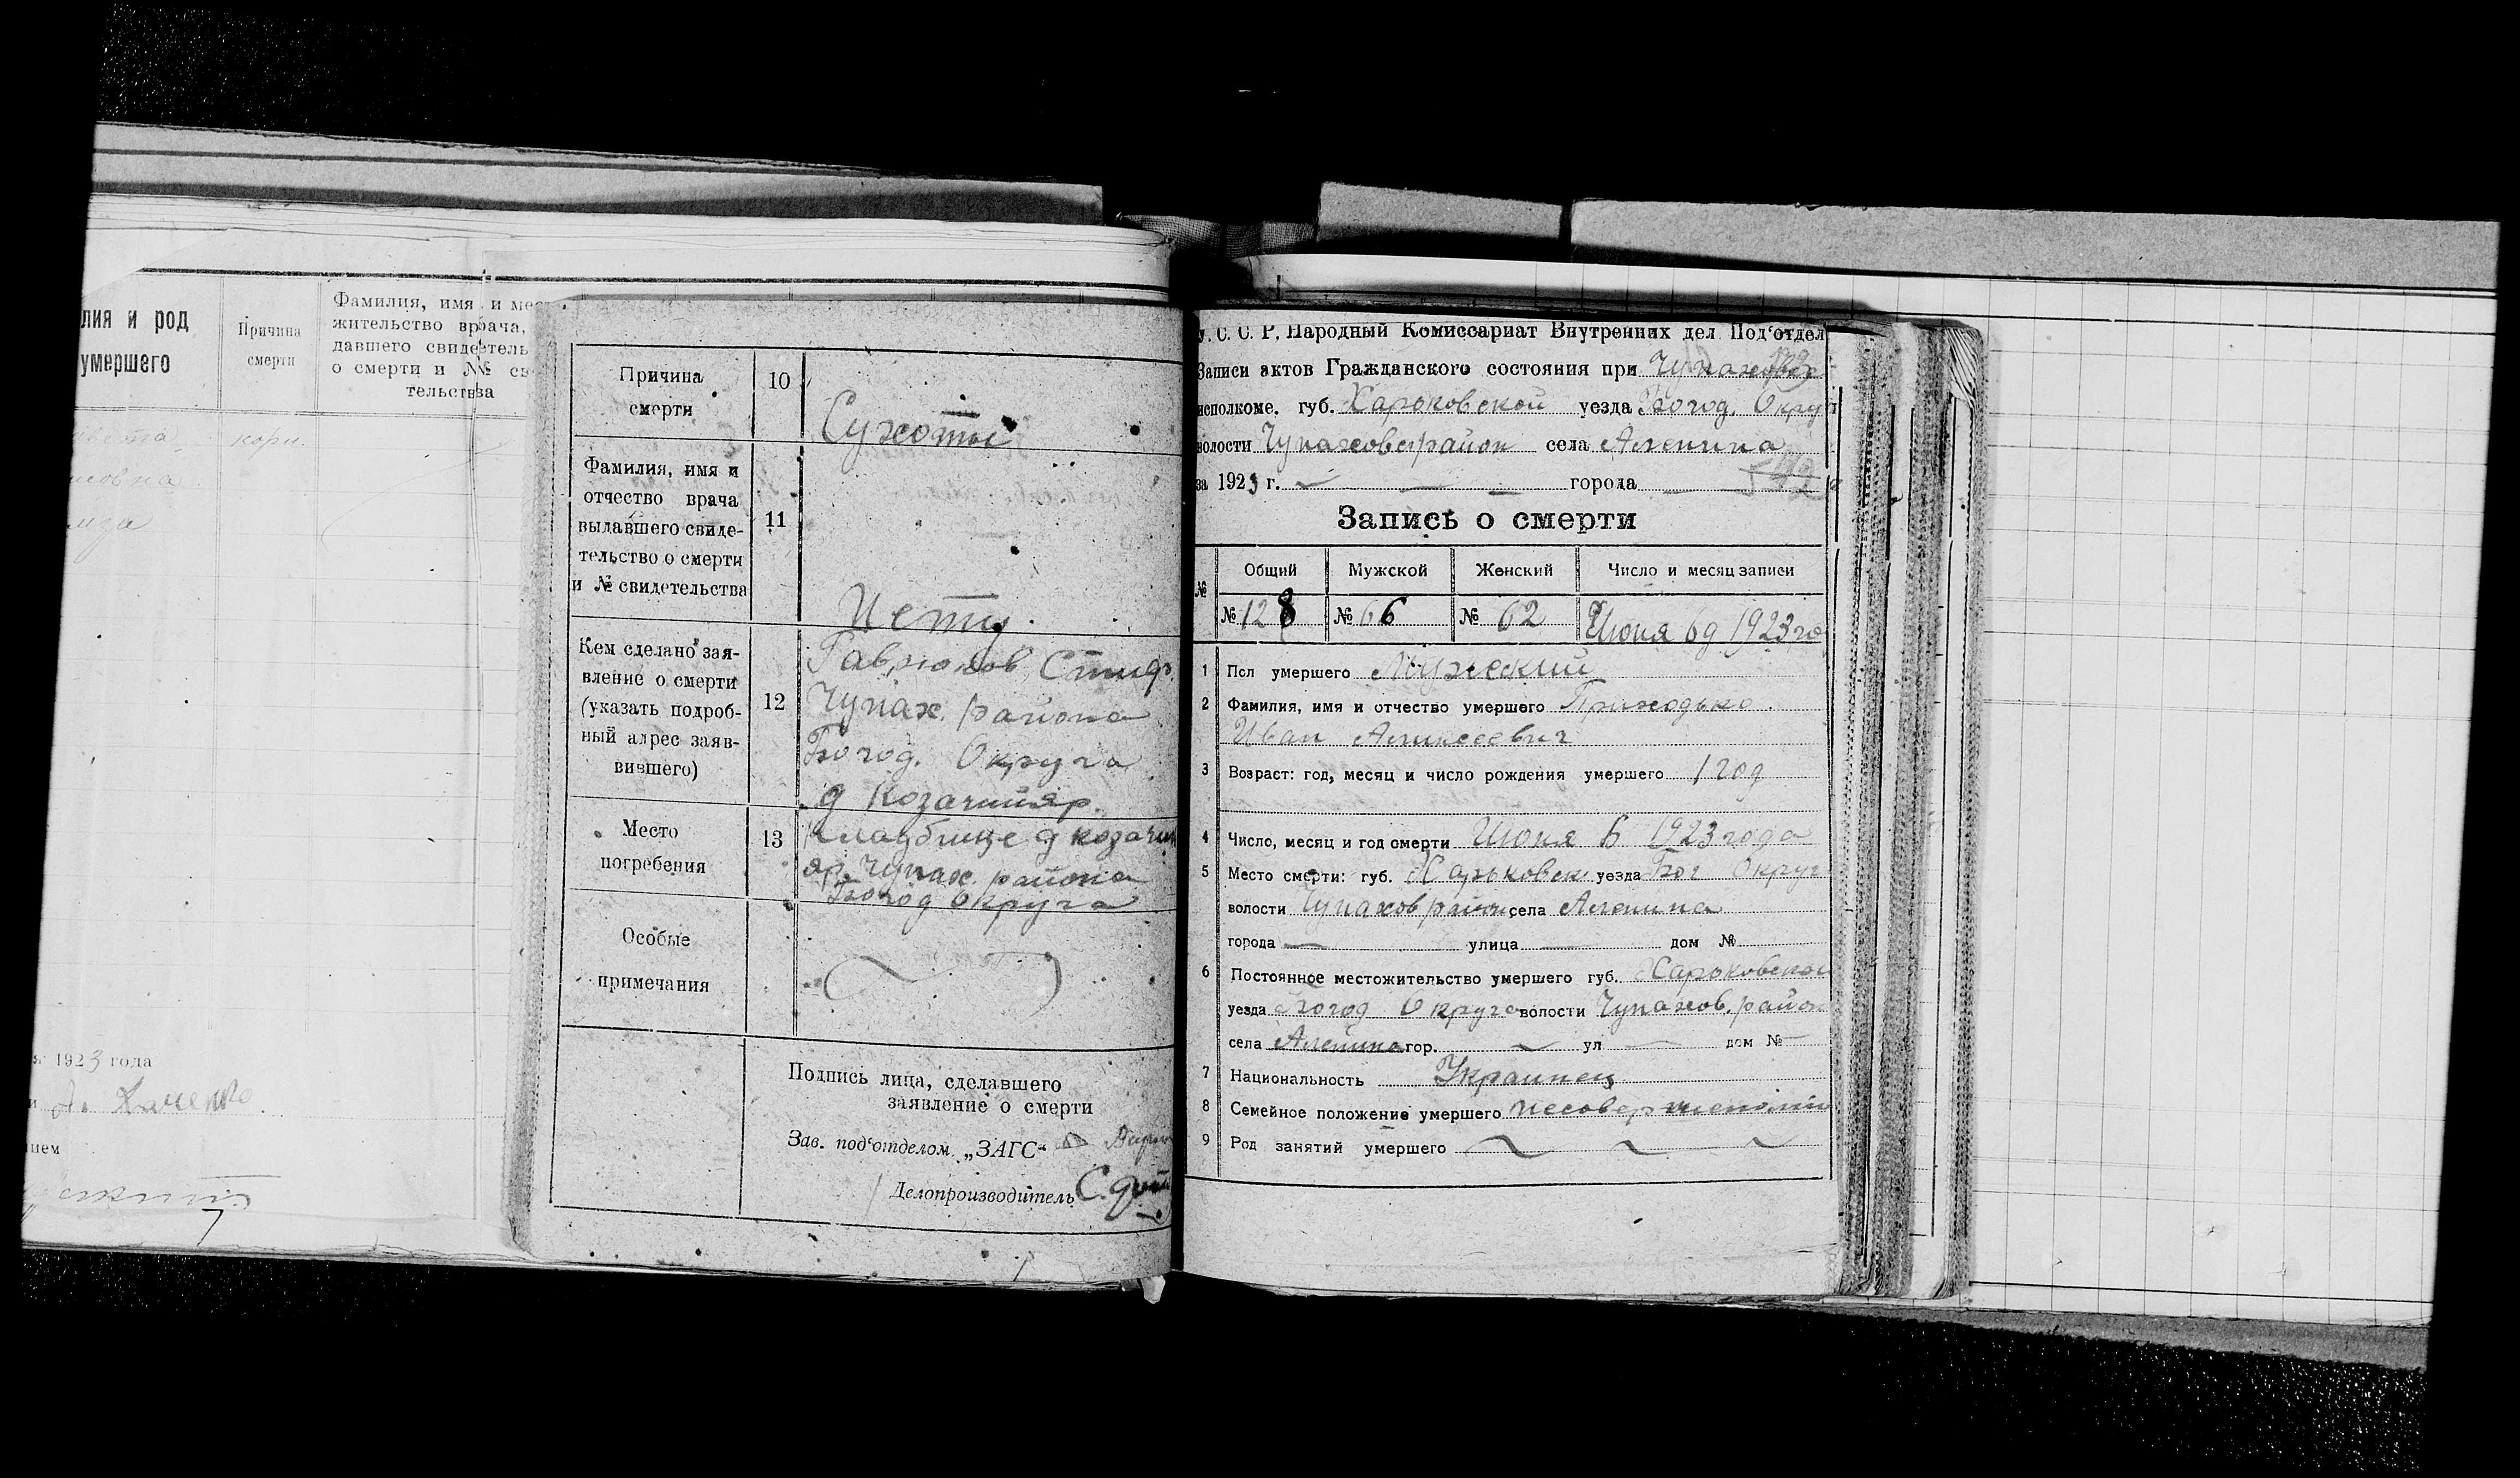 лия и род
умершего
Причина
смерти
Фамилия, имя и мес
жительство врача,
давшего свидетель
о смерти и №№ св
тельства
кори.
я 1923 года
нием
Причина
смерти
10
Сухоты
Фамилия, имя и
отчество врача
выдавшего свиде-
тельство о смерти
и № свидетельства
11
Нету
Кем сделано зая-
вление о смерти
(указать подроб-
ный адрес заяв-
вившего)
12
Гаврюков Стиф.
Чупах. района
Богод. Округа
д Козачийяр.
Место
погребения
13
Кладбище д козачи
яр. Чупах. района
Богод Округа
Особые
примечания
Подпись лица, сделавшего
заявление о смерти
Зав. под‘отделом „ЗАГС“
Делопроизводитель
У. С. С. Р. Народный Комиссариат Внутренних дел Под‘отдел
Записи актов Гражданского состояния при Чупахов
исполкоме. губ. Харьковской уезда Богод. Округ
волости Чупаховрайон села Алешина
за 1923 г. города
Запись о смерти
№ Общий Мужской Женский Число и месяц записи
№ 128 № 66 № 62 Июня 6д 1923 го
1 Пол умершего Мужеский
2 Фамилия, имя и отчество умершего Приходько.
Иван Аликсеевич
3 Возраст: год, месяц и число рождения умершего 1 год
4 Число, месяц и год смерти Июня 6 1923 года
5 Место смерти: губ. Харьковск уезда Бог Округ
волости Чупахов район села Алешина
города улица дом №
6 Постоянное местожительство умершего губ. Харьковской
уезда Богод Округа волости Чупахов. район
села Алешина гор. ул дом №
7 Национальность Украинец
8 Семейное положение умершего
9 Род занятий умершего